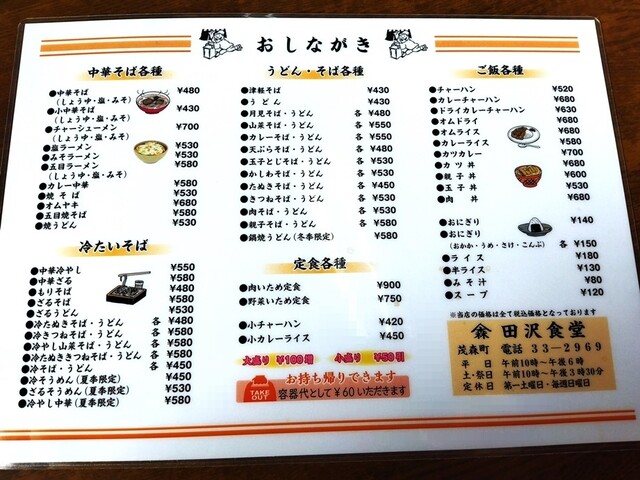 おしながき
中華そば各種
●中華そば ¥480
(しょうゆ・塩・みそ)
●小中華そば ¥430
(しょうゆ・塩・みそ)
●チャーシューメン ¥700
(しょうゆ・塩・みそ)
●塩ラーメン ¥530
●みそラーメン ¥530
●五目ラーメン ¥580
(しょうゆ・塩・みそ)
●カレー中華 ¥580
●焼そば ¥530
●オムヤキ ¥680
●五目焼そば ¥580
●焼うどん ¥530
冷たいそば
●中華冷やし ¥550
●中華ざる ¥580
●もりそば ¥480
●ざるそば ¥580
●ざるうどん ¥530
●冷たぬきそば・うどん 各 ¥480
●冷きつねそば・うどん 各 ¥580
●冷やし山菜そば・うどん 各 ¥580
●冷たぬききつねそば・うどん 各 ¥580
●冷そば・うどん 各 ¥450
●冷そうめん(夏季限定) ¥450
●ざるそうめん(夏季限定) ¥530
●冷やし中華(夏季限定) ¥580
うどん・そば各種
●津軽そば ¥430
●うどん ¥430
●月見そば・うどん 各 ¥480
●山菜そば・うどん 各 ¥550
●カレーそば・うどん 各 ¥550
●天ぷらそば・うどん 各 ¥480
●玉子とじそば・うどん 各 ¥530
●かしわそば・うどん 各 ¥530
●たぬきそば・うどん 各 ¥450
●きつねそば・うどん 各 ¥530
●肉そば・うどん 各 ¥530
●親子そば・うどん 各 ¥580
●鍋焼うどん(冬季限定) ¥580
定食各種
●肉いため定食 ¥900
●野菜いため定食 ¥750
●小チャーハン ¥420
●小カレーライス ¥450
大盛り ¥100増 小盛り ¥50引
TAKE OUT
お持ち帰りできます
容器代として¥60いただきます
ご飯各種
●チャーハン ¥520
●カレーチャーハン ¥680
●ドライカレーチャーハン ¥630
●オムドライ ¥680
●オムライス ¥680
●カレーライス ¥580
●カツカレー ¥700
●カツ丼 ¥680
●親子丼 ¥600
●玉子丼 ¥530
●肉丼 ¥680
●おにぎり ¥140
●おにぎり
(おかか・うめ・さけ・こんぶ) 各 ¥150
●ライス ¥180
●半ライス ¥130
●みそ汁 ¥80
●スープ ¥120
※当店の価格は全て税込価格となっております
田沢食堂
茂森町 電話 33-2969
平日 午前10時〜午後6時
土・祭日 午前10時〜午後3時30分
定休日 第一土曜日・毎週日曜日